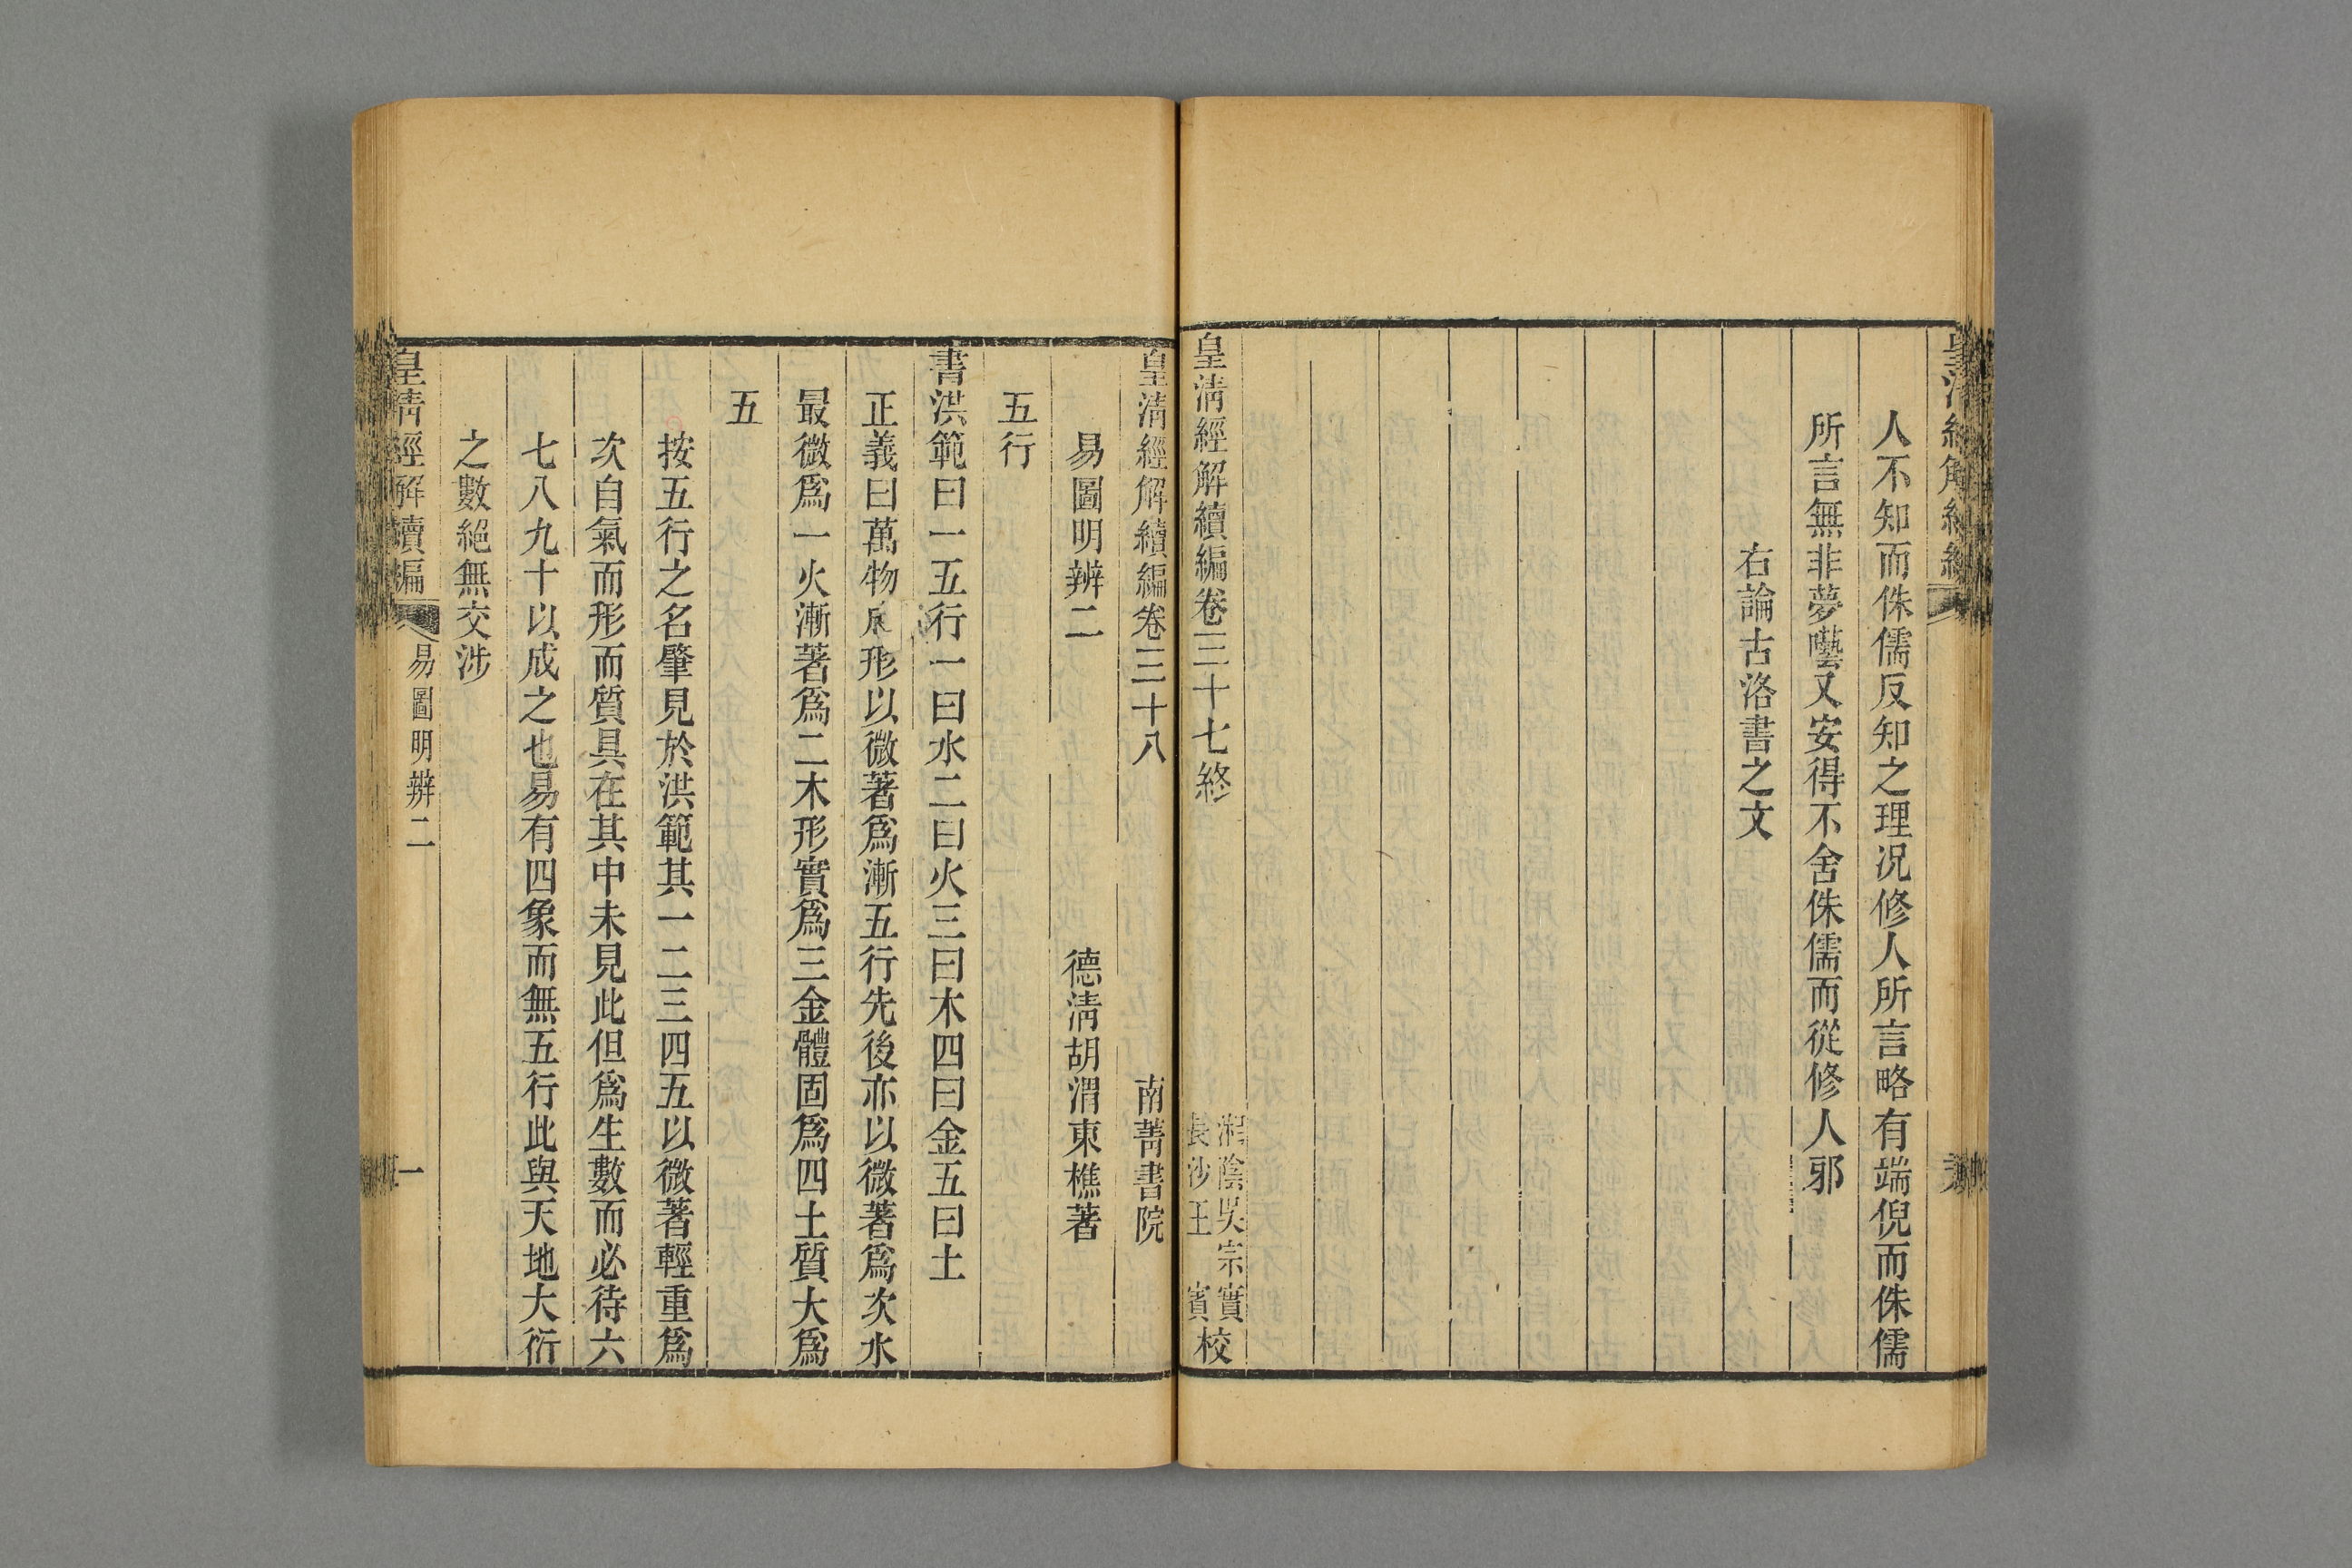 人不知而侏儒反知之理况修人所言略有端倪而侏儒
所言無非夢囈又安得不舍侏儒而從修人邪
右論古洛書之文
皇淸經解續編卷三十七終
湘陰吳宗實
長沙王 賓
校
皇淸經解續編卷三十八
南菁書院
易圖明辨二
德淸胡渭東樵著
五行
書洪範曰一五行一曰水二曰火三曰木四曰金五曰土
正義曰萬物成形以微著爲漸五行先後亦以微著爲次水
最微爲一火漸著爲二木形實爲三金體固爲四土質大爲
五
按五行之名肇見於洪範其一二三四五以微著輕重爲
次自氣而形而質具在其中未見此但爲生數而必待六
七八九十以成之也易有四象而無五行此與天地大衍
之數絕無交涉
皇淸經解續編
易圖明辨二
一